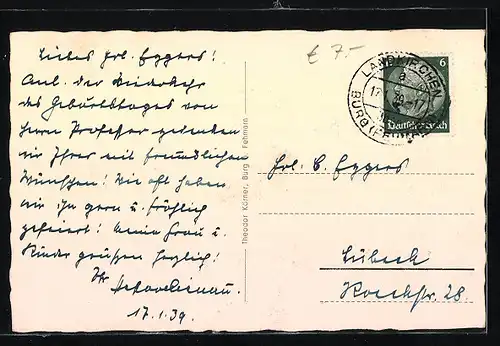 Liebes Frl. Eggers!
Anl. der Wiederkehr
des Geburtstages von
Herrn Professor gedenken
wir Ihrer mit freundlichen
Wünschen! Wie oft haben
wir ihn gern u. fröhlich
gefeiert! Meine Frau u.
Kinder grüßen herzlich!
Ihr
17.1.39.
Theodor Körner, Burg Fehmarn
€ 7.-
LANDKIRCHEN
BURG (FEHMARN)
6
Deutsches Reich
Frl. C. Eggers
Lübeck
28